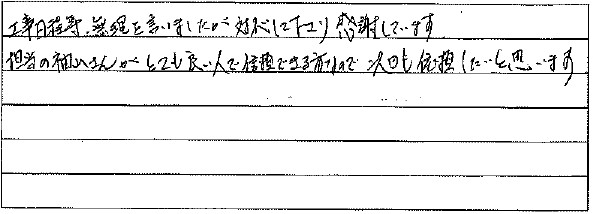 工事日程等、無理を言いましたが対応して下さり感謝しています
担当の福山さんがとても良い人で信頼できる方なので次回も依頼したいと思います